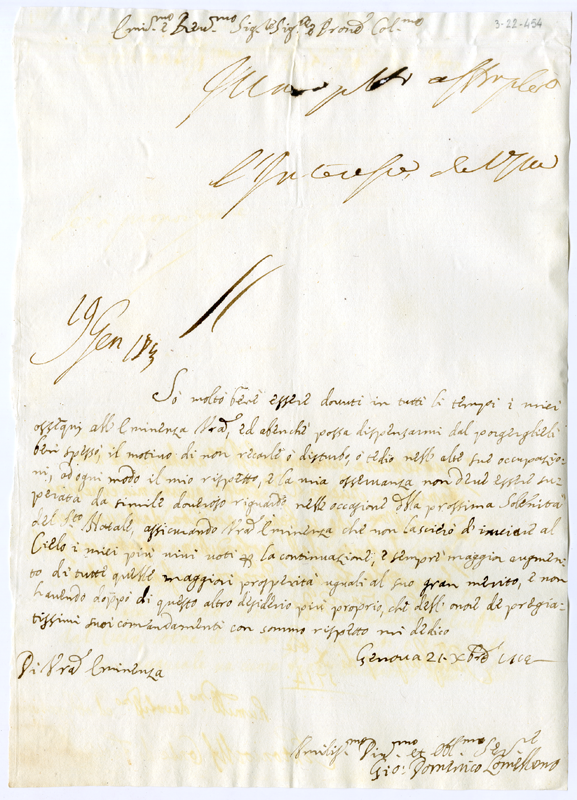 3-22-454
Em.mo e Rev.mo Sig.r Sig.r e Pron Col.mo
19 Gen
Sò molto bene essere dovuti in tutti li tempi i miei
ossequij all'Eminenza Vra, ed abenche possa dispensarmi dal porgerglieli
ben spesso, il motivo di non recarle ò disturbo, ò tedio nelle alte sue occupazio-
ni, ad ogni modo il mio rispetto, e la mia osservanza non deve essere su-
perata da simile doveroso riguardo nelle occasione della prossima Solennità
del Sto Natale, assicurando Vra Eminenza che non lascierò d'inviare al
Cielo i miei più vivi voti per la continuazione, e sempre maggior augumen-
to di tutte quelle maggiori prosperità uguali al suo gran merito, e non
havendo doppo di questo altro desiderio più proprio, che dell'onore de pregia-
tissimi suoi comandamenti con sommo rispetto mi dedico
Genova 21 Xbre
Di Vra Eminenza
Umiliss.mo Div.mo et Obl.mo Ser.re
Gio: Domenico Lomellino